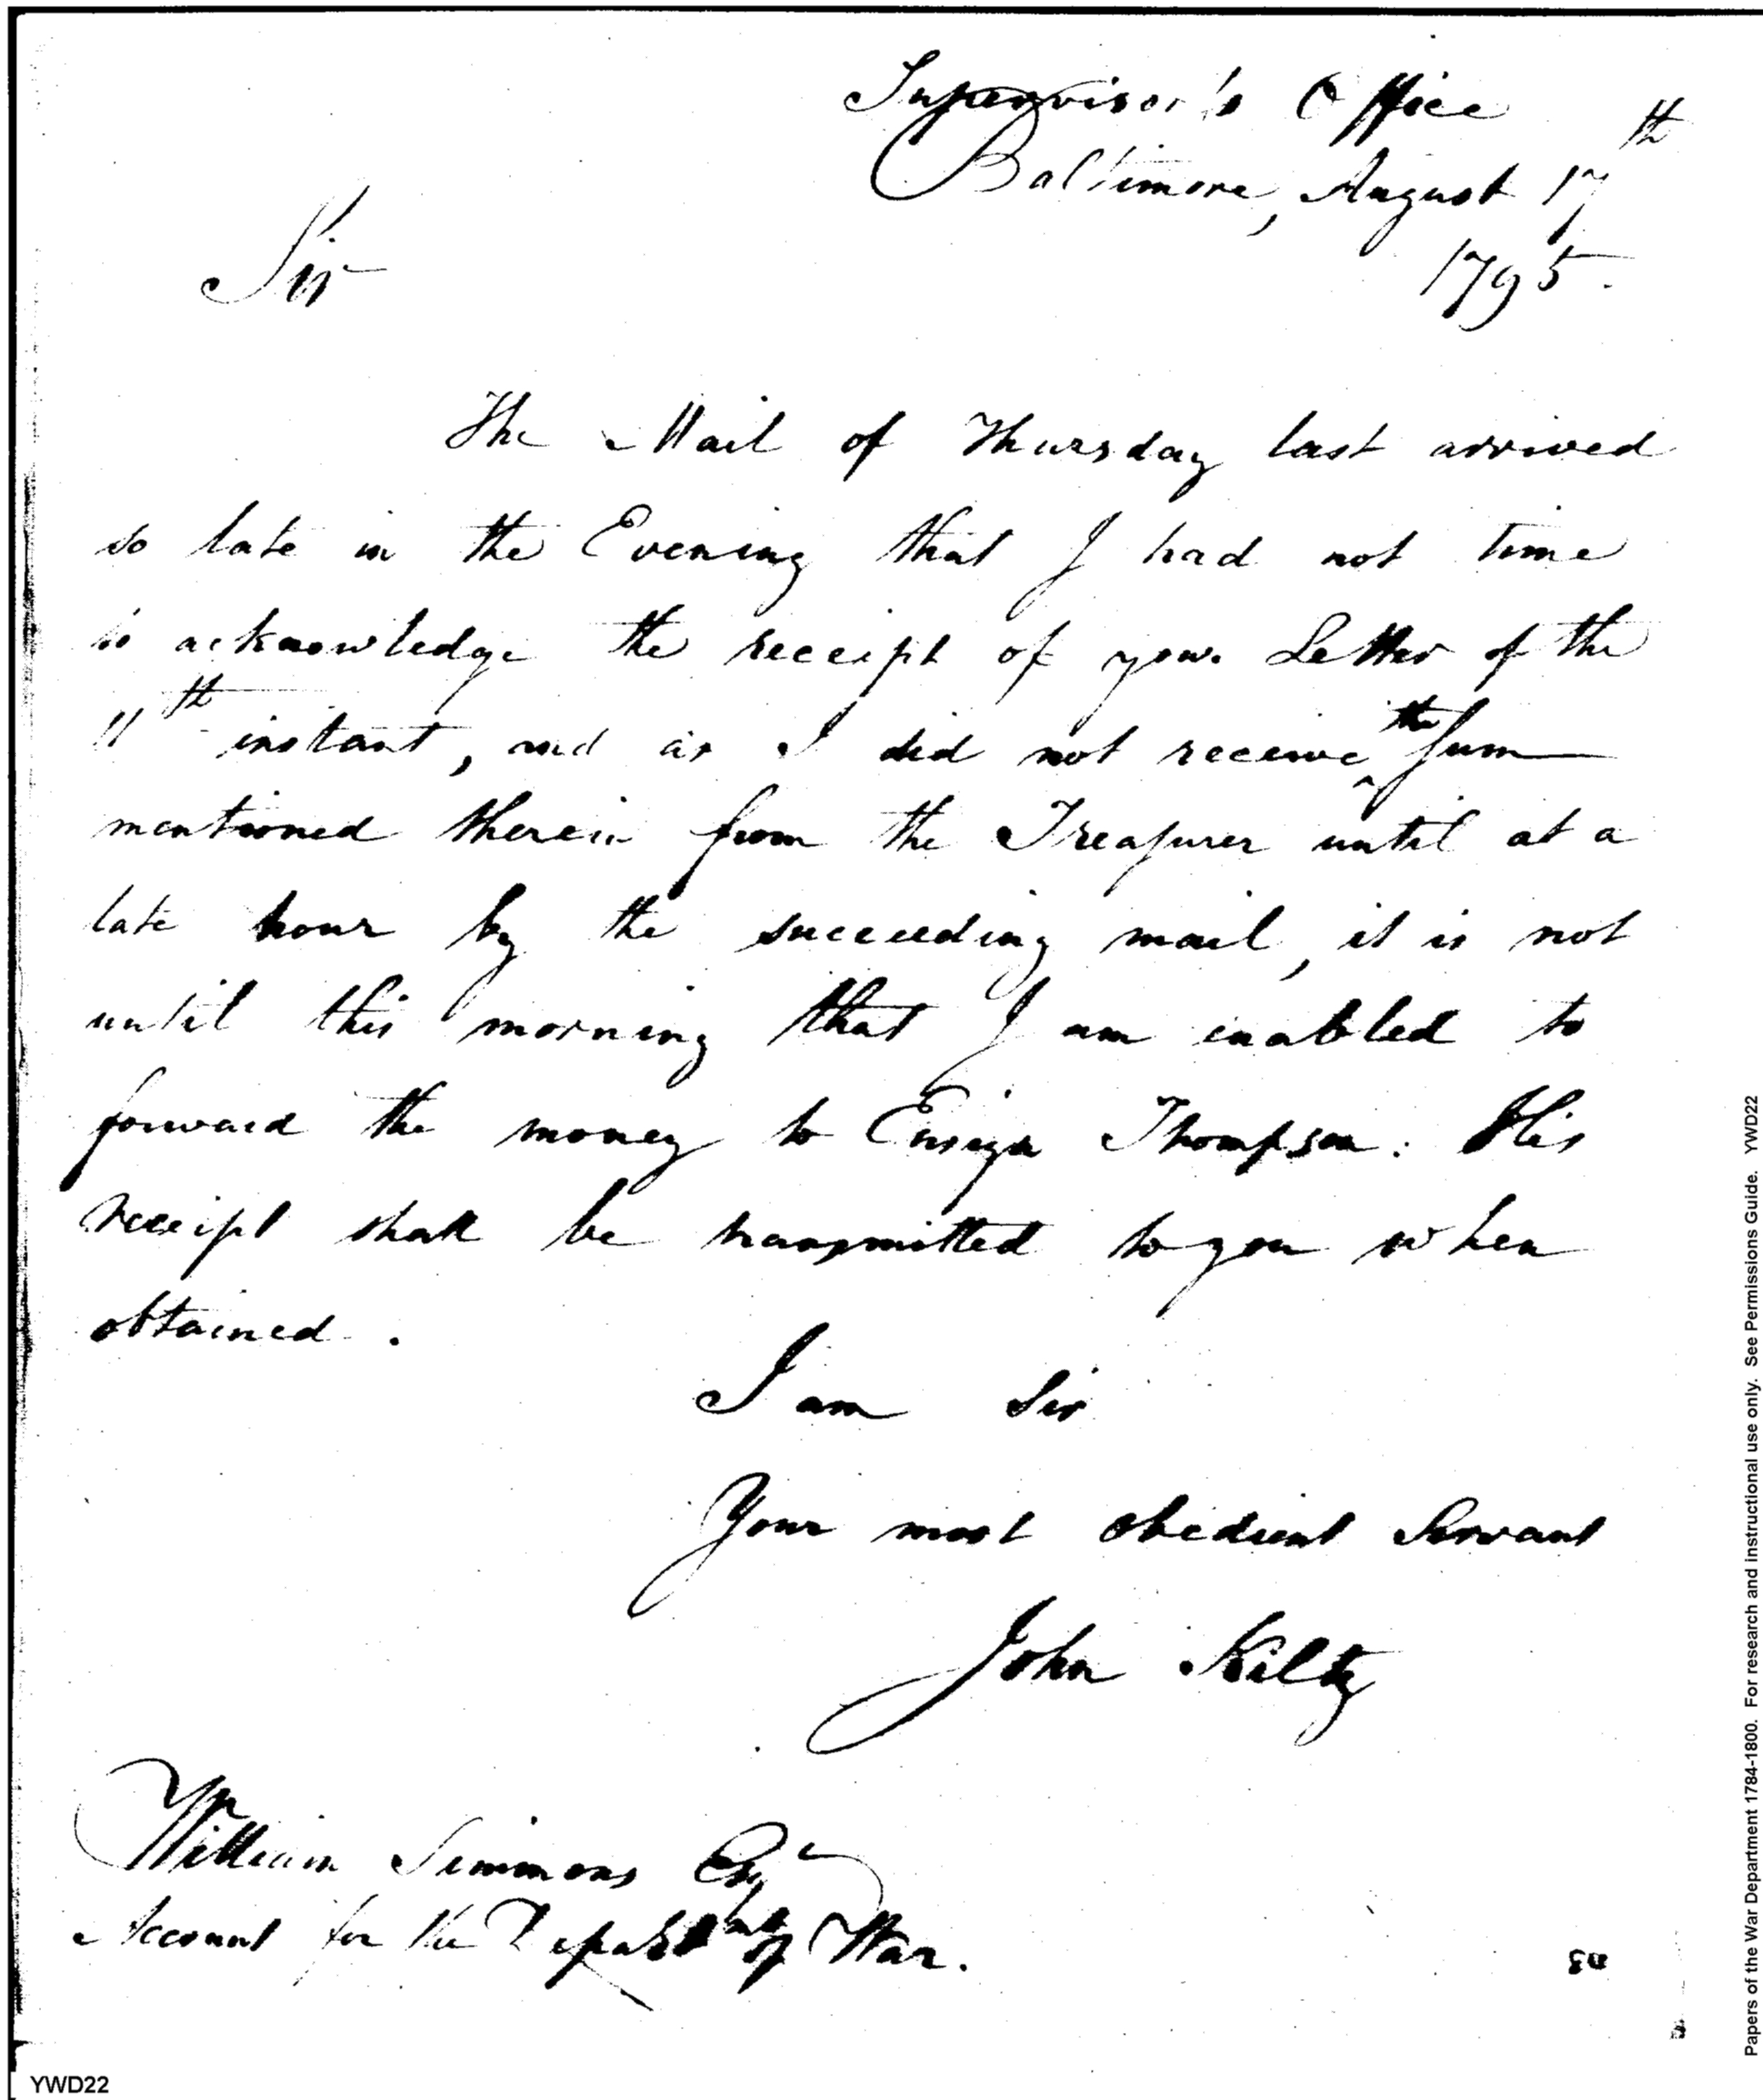 Supervisor's Office
Baltimore, August 17th
1795.
Sir
The Mail of Thursday last arrived
so late in the Evening that I had not time
to acknowledge the receipt of your Letter of the
11th instant, and as I did not receive the Sum
mentioned therein from the Treasurer until at a
late hour by the succeeding mail, it is not
until this morning that I am enabled to
forward the money to Ensign Thompson. His
receipt shall be transmitted to you when
obtained.
I am Sir
Your most obedient Servant
John Kilty
William Simmons Esqr
Account for the Departmt of War.
YWD22
Papers of the War Department 1784-1800. For research and instructional use only. See Permissions Guide. YWD22